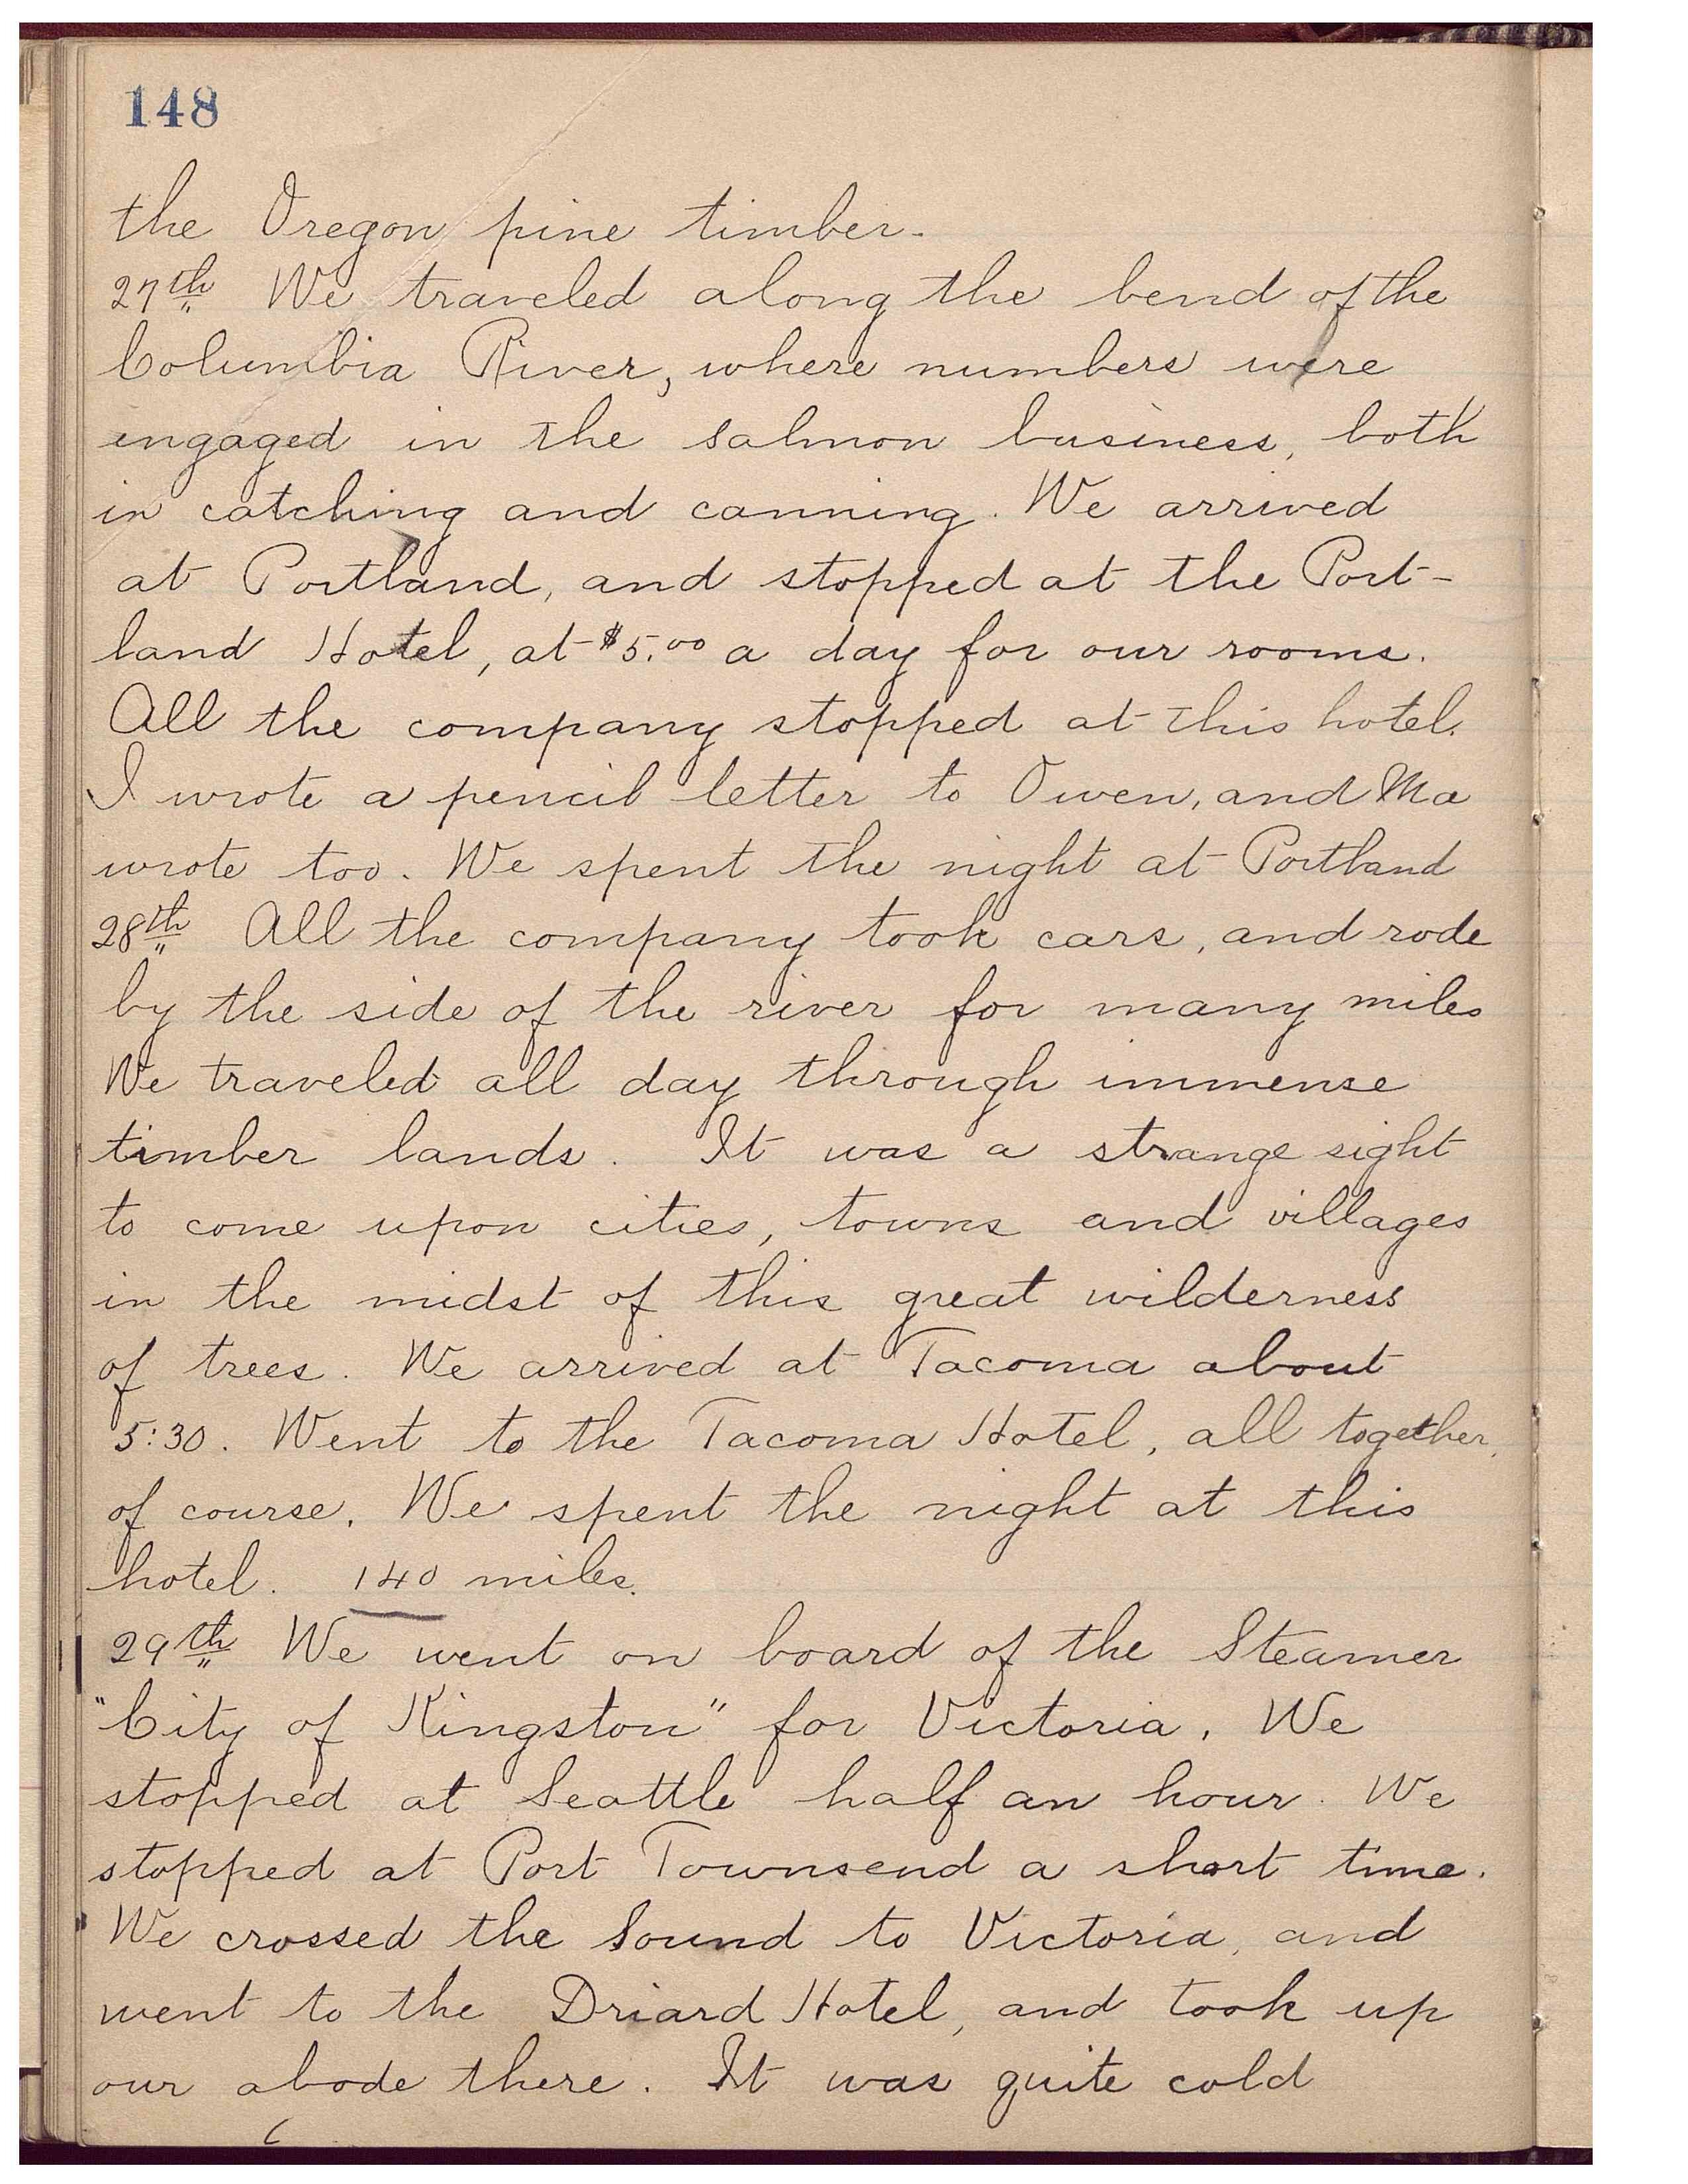 148
the Oregon pine timber.
27th We traveled along the bend of the
Columbia River, where numbers were
engaged in the salmon business, both
in catching and canning. We arrived
at Portland, and stopped at the Port-
land Hotel, at $5.00 a day for our rooms.
All the company stopped at this hotel.
I wrote a pencil letter to Owen, and Ma
wrote too. We spent the night at Portland
28th All the company took cars, and rode
by the side of the river for many miles
We traveled all day through immense
timber lands. It was a strange sight
to come upon cities, towns and villages
in the midst of this great wilderness
of trees. We arrived at Tacoma about
5:30. Went to the Tacoma Hotel, all together,
of course. We spent the night at this
hotel. 140 miles.
29th We went on board of the Steamer
"City of Kingston" for Victoria. We
stopped at Seattle half an hour. We
stopped at Port Townsend a short time.
We crossed the Sound to Victoria, and
went to the Driard Hotel, and took up
our abode there. It was quite cold